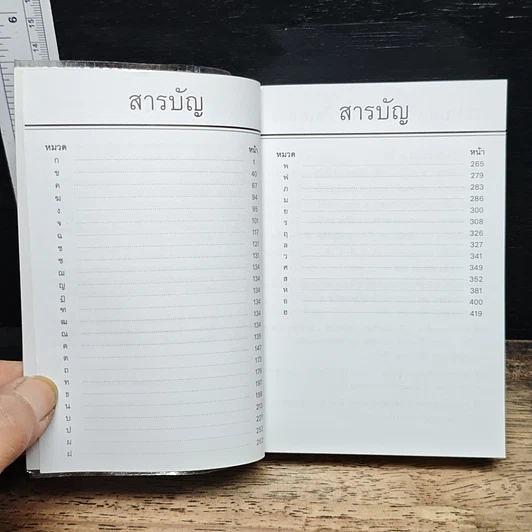 สารบัญ
หมวด หน้า
ก 1
ข 40
ค 67
ฆ 94
ง 95
จ 101
ฉ 117
ช 121
ซ 131
ฌ 134
ญ 134
ฎ 134
ฑ 134
ฒ 134
ณ 134
ด 135
ต 147
ถ 173
ท 179
ธ 197
น 199
บ 213
ป 237
ผ 253
ฝ 263
สารบัญ
หมวด หน้า
พ 265
ฟ 279
ภ 283
ม 286
ย 300
ร 308
ฤ 326
ล 327
ว 341
ศ 349
ส 352
ห 381
อ 400
ฮ 419
6
15
14